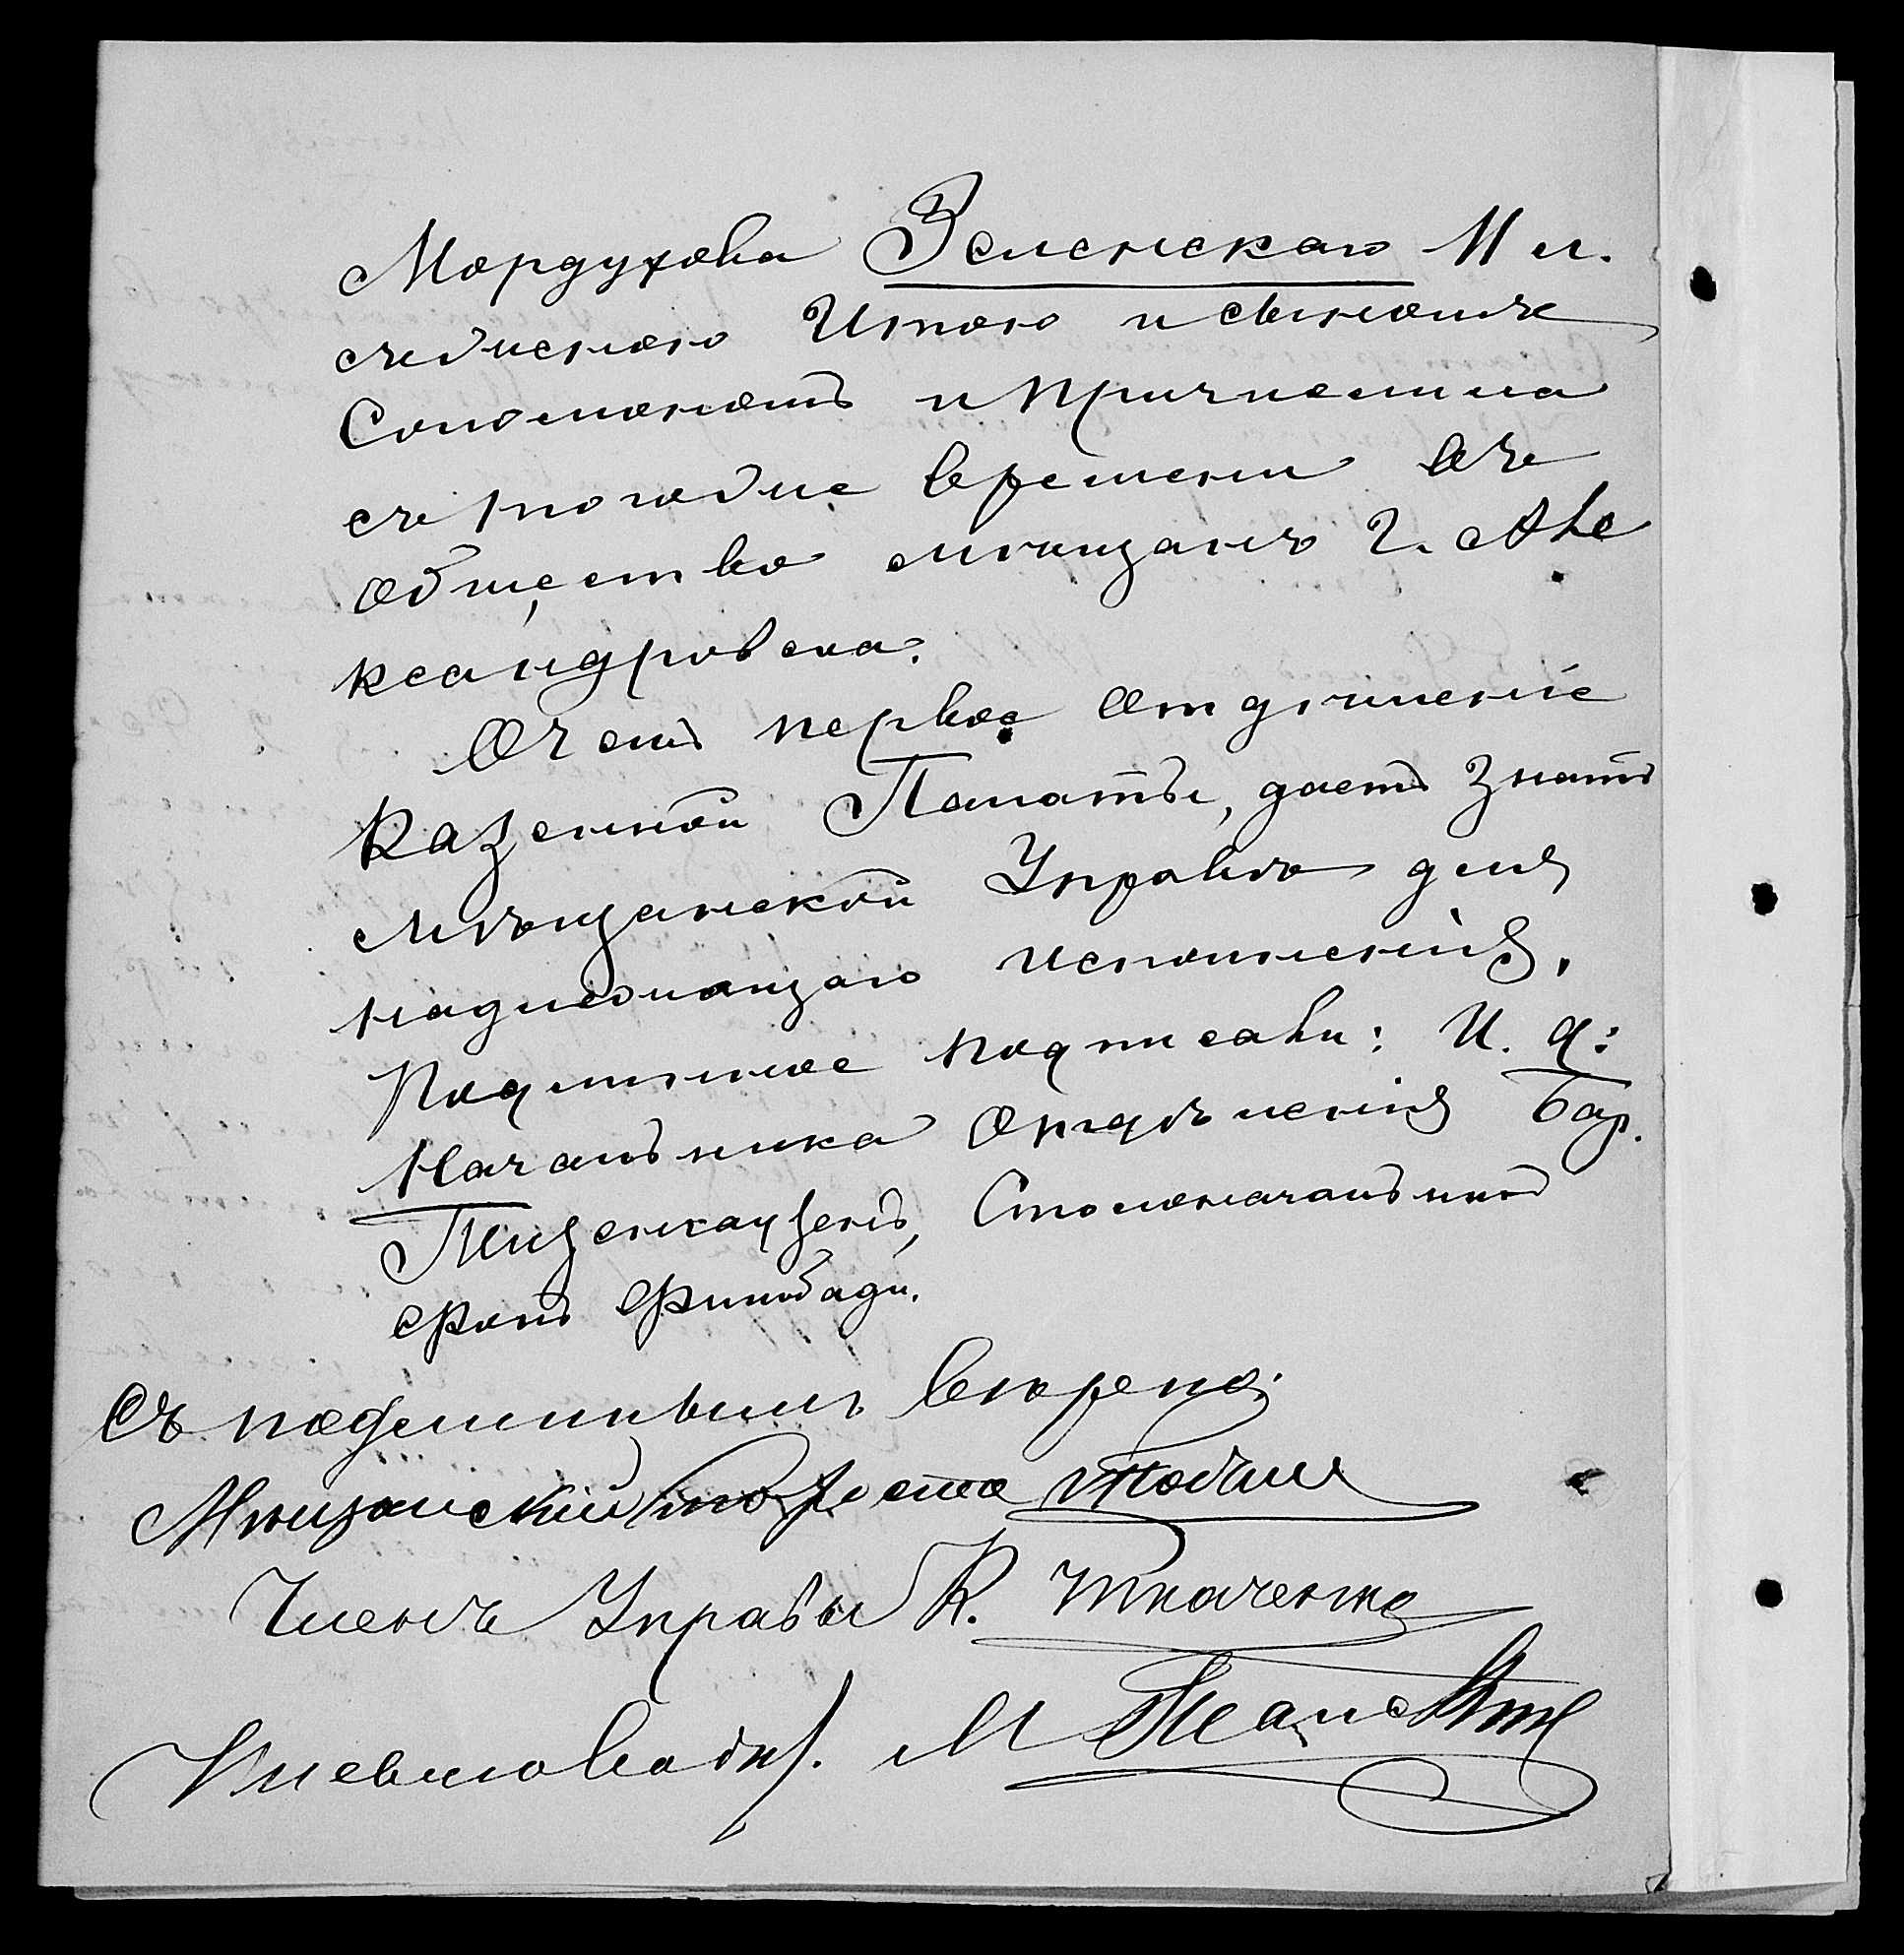 Мордухова Зеленскаго 11 л.
съ женою Итою и сыномъ
Соломономъ и причислила
съ 1 половине времени въ
общество мѣщанъ г. Але
ксандровска.
О чемъ первое Отдѣленіе
Казенной Палаты, даетъ знать
Мѣщанской Управѣ для
надлежащаго исполненія.
Подлинное подписали: И. д:
Начальника Отдѣленія Бар.
Тизенгаузенъ, Столоначальникъ
фонъ
Съ подлиннымъ вѣрно:
Мѣщанскій староста
Членъ Управы К. Ткаченко
Письмовод. М